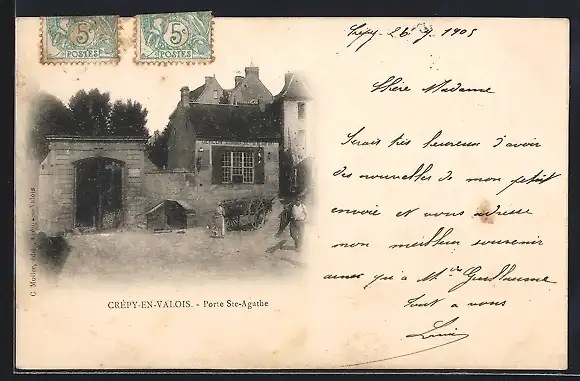 5c
POSTES
5c
POSTES
Crépy 26 9 1905
Chère Madame
Serais très heureux d'avoir
des nouvelles de mon petit
envoie et vous adresse
mon meilleur souvenir
ainsi qu'à Mr Guillaume
Tout a vous
CRÉPY-EN-VALOIS. - Porte Ste-Agathe